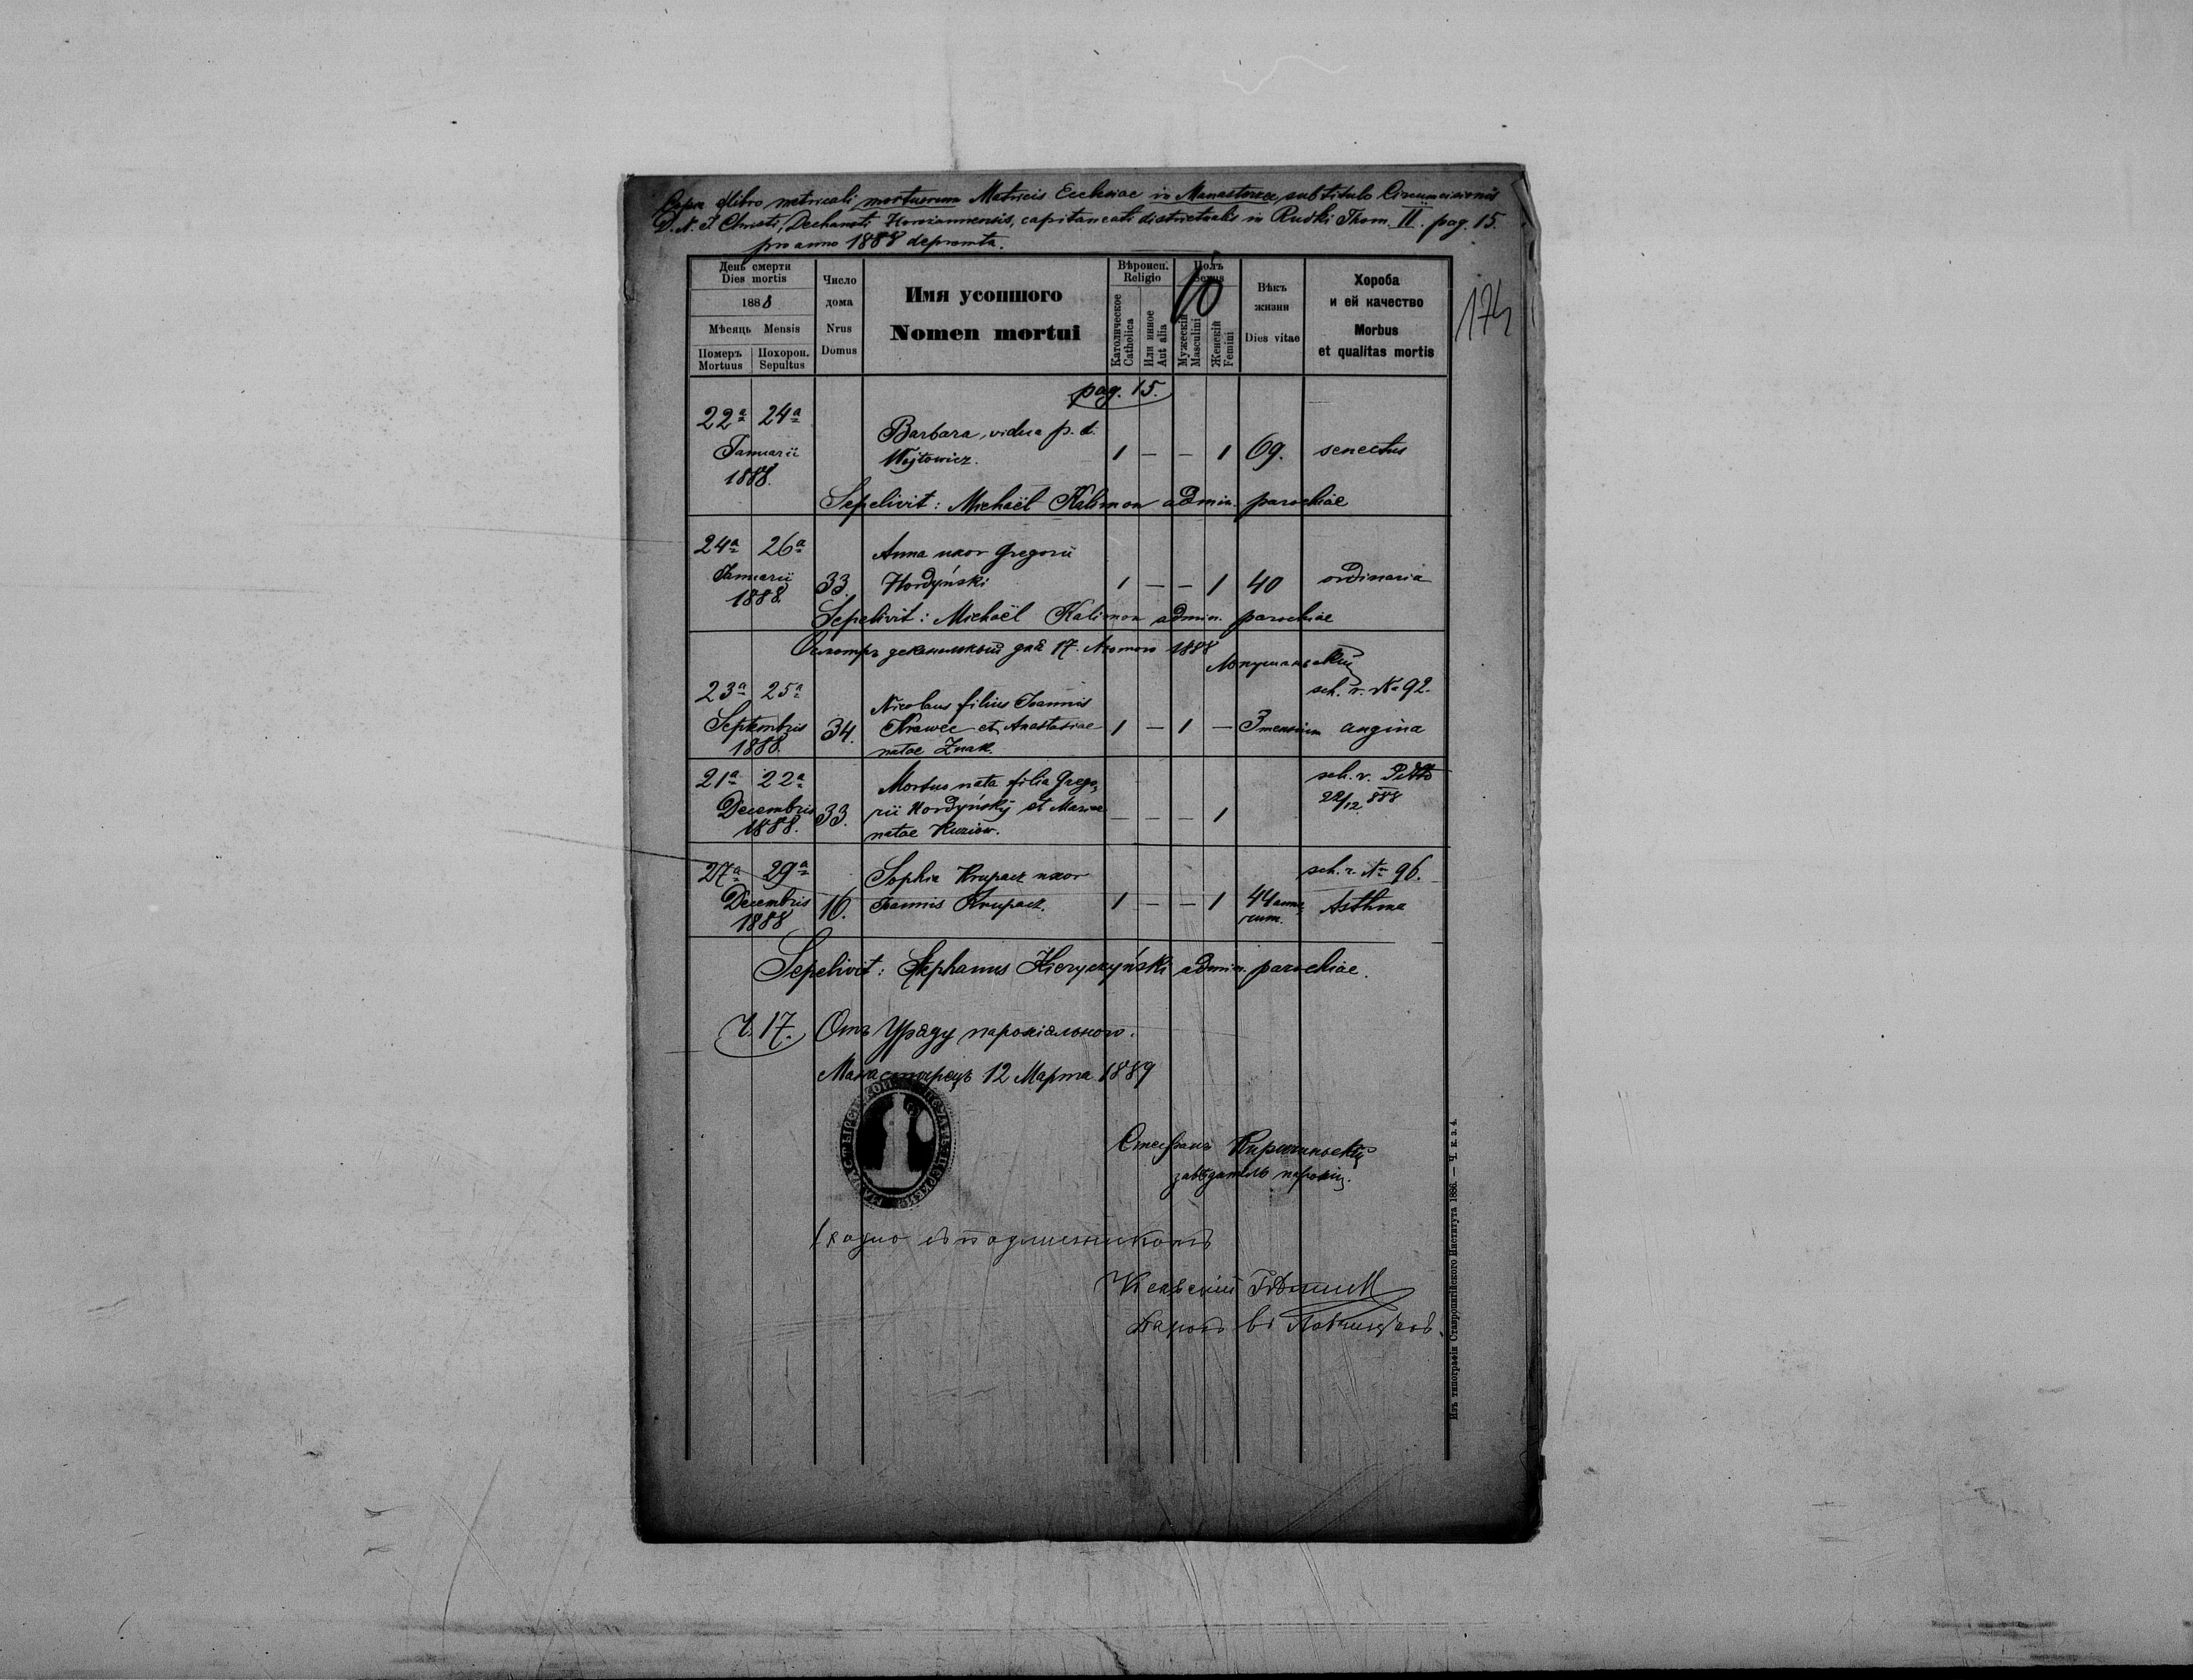 Copia e libro metricali mortuorum Matricis Ecclesiae in Manasterzec, sub titulo Circumcisionis
D. N. J. Christi, Decanati Horożannensis, capitaneati districtualis in Rudki Thom. II. pag. 15.
pro anno 1888 deprompta.
День смерти
Dies mortis
1888
Мѣсяць Mensis
Померъ Mortuus
Похорон. Sepultus
Число дома
Nrus Domus
Имя усопшого
Nomen mortui
Вѣроисп. Religio
Католическое Catholica
Или инное Aut alia
Полъ Sexus
Мужескій Masculini
Женскій Femini
Вѣкъ жизни
Dies vitae
Хороба и ей качество
Morbus et qualitas mortis
10
174
pag. 15.
22ª 24ª
Januarii
1888.
Barbara, vidua p. d.
Wojtowicz. 1 — — 1 69. senectus
Sepelivit: Michaël Kalimon admin. parochiae
24ª 26ª
Januarii
1888.
33.
Anna uxor Gregorii
Hordyński 1 — — 1 40 ordinaria
Sepelivit: Michaël Kalimon admin. parochiae
дня 17. Лютого 1888
23ª 25ª
Septembris
1888.
34.
Nicolaus filius Joannis
Krawec et Anastasiae 1 — 1 — 3 mensium
natae Znak.
sch. r. № 92.
angina
21ª 22ª
Decembris
1888.
33.
Mortuo nata filia Grego-
rii Hordyńskij et Mariae — — — 1
natae Kuziow.
sch. r.
22/12 888
27ª 29ª
Decembris
1888
16.
Sophia Krupacz uxor
Joannis Krupacz. 1 — — 1 44 anno-
rum.
sch. r. № 96.
Asthma
Sepelivit: Stephanus Kieryczyński admin. parochiae.
Ч. 17. Отъ Уряду парохіяльного.
Манастырець 12 Марта 1889
Стефанъ
завѣдатель парохіи.
съ подлинникомъ
Изъ типографіи Ставропигійского Института 1886. — Ч. к. з. 4.